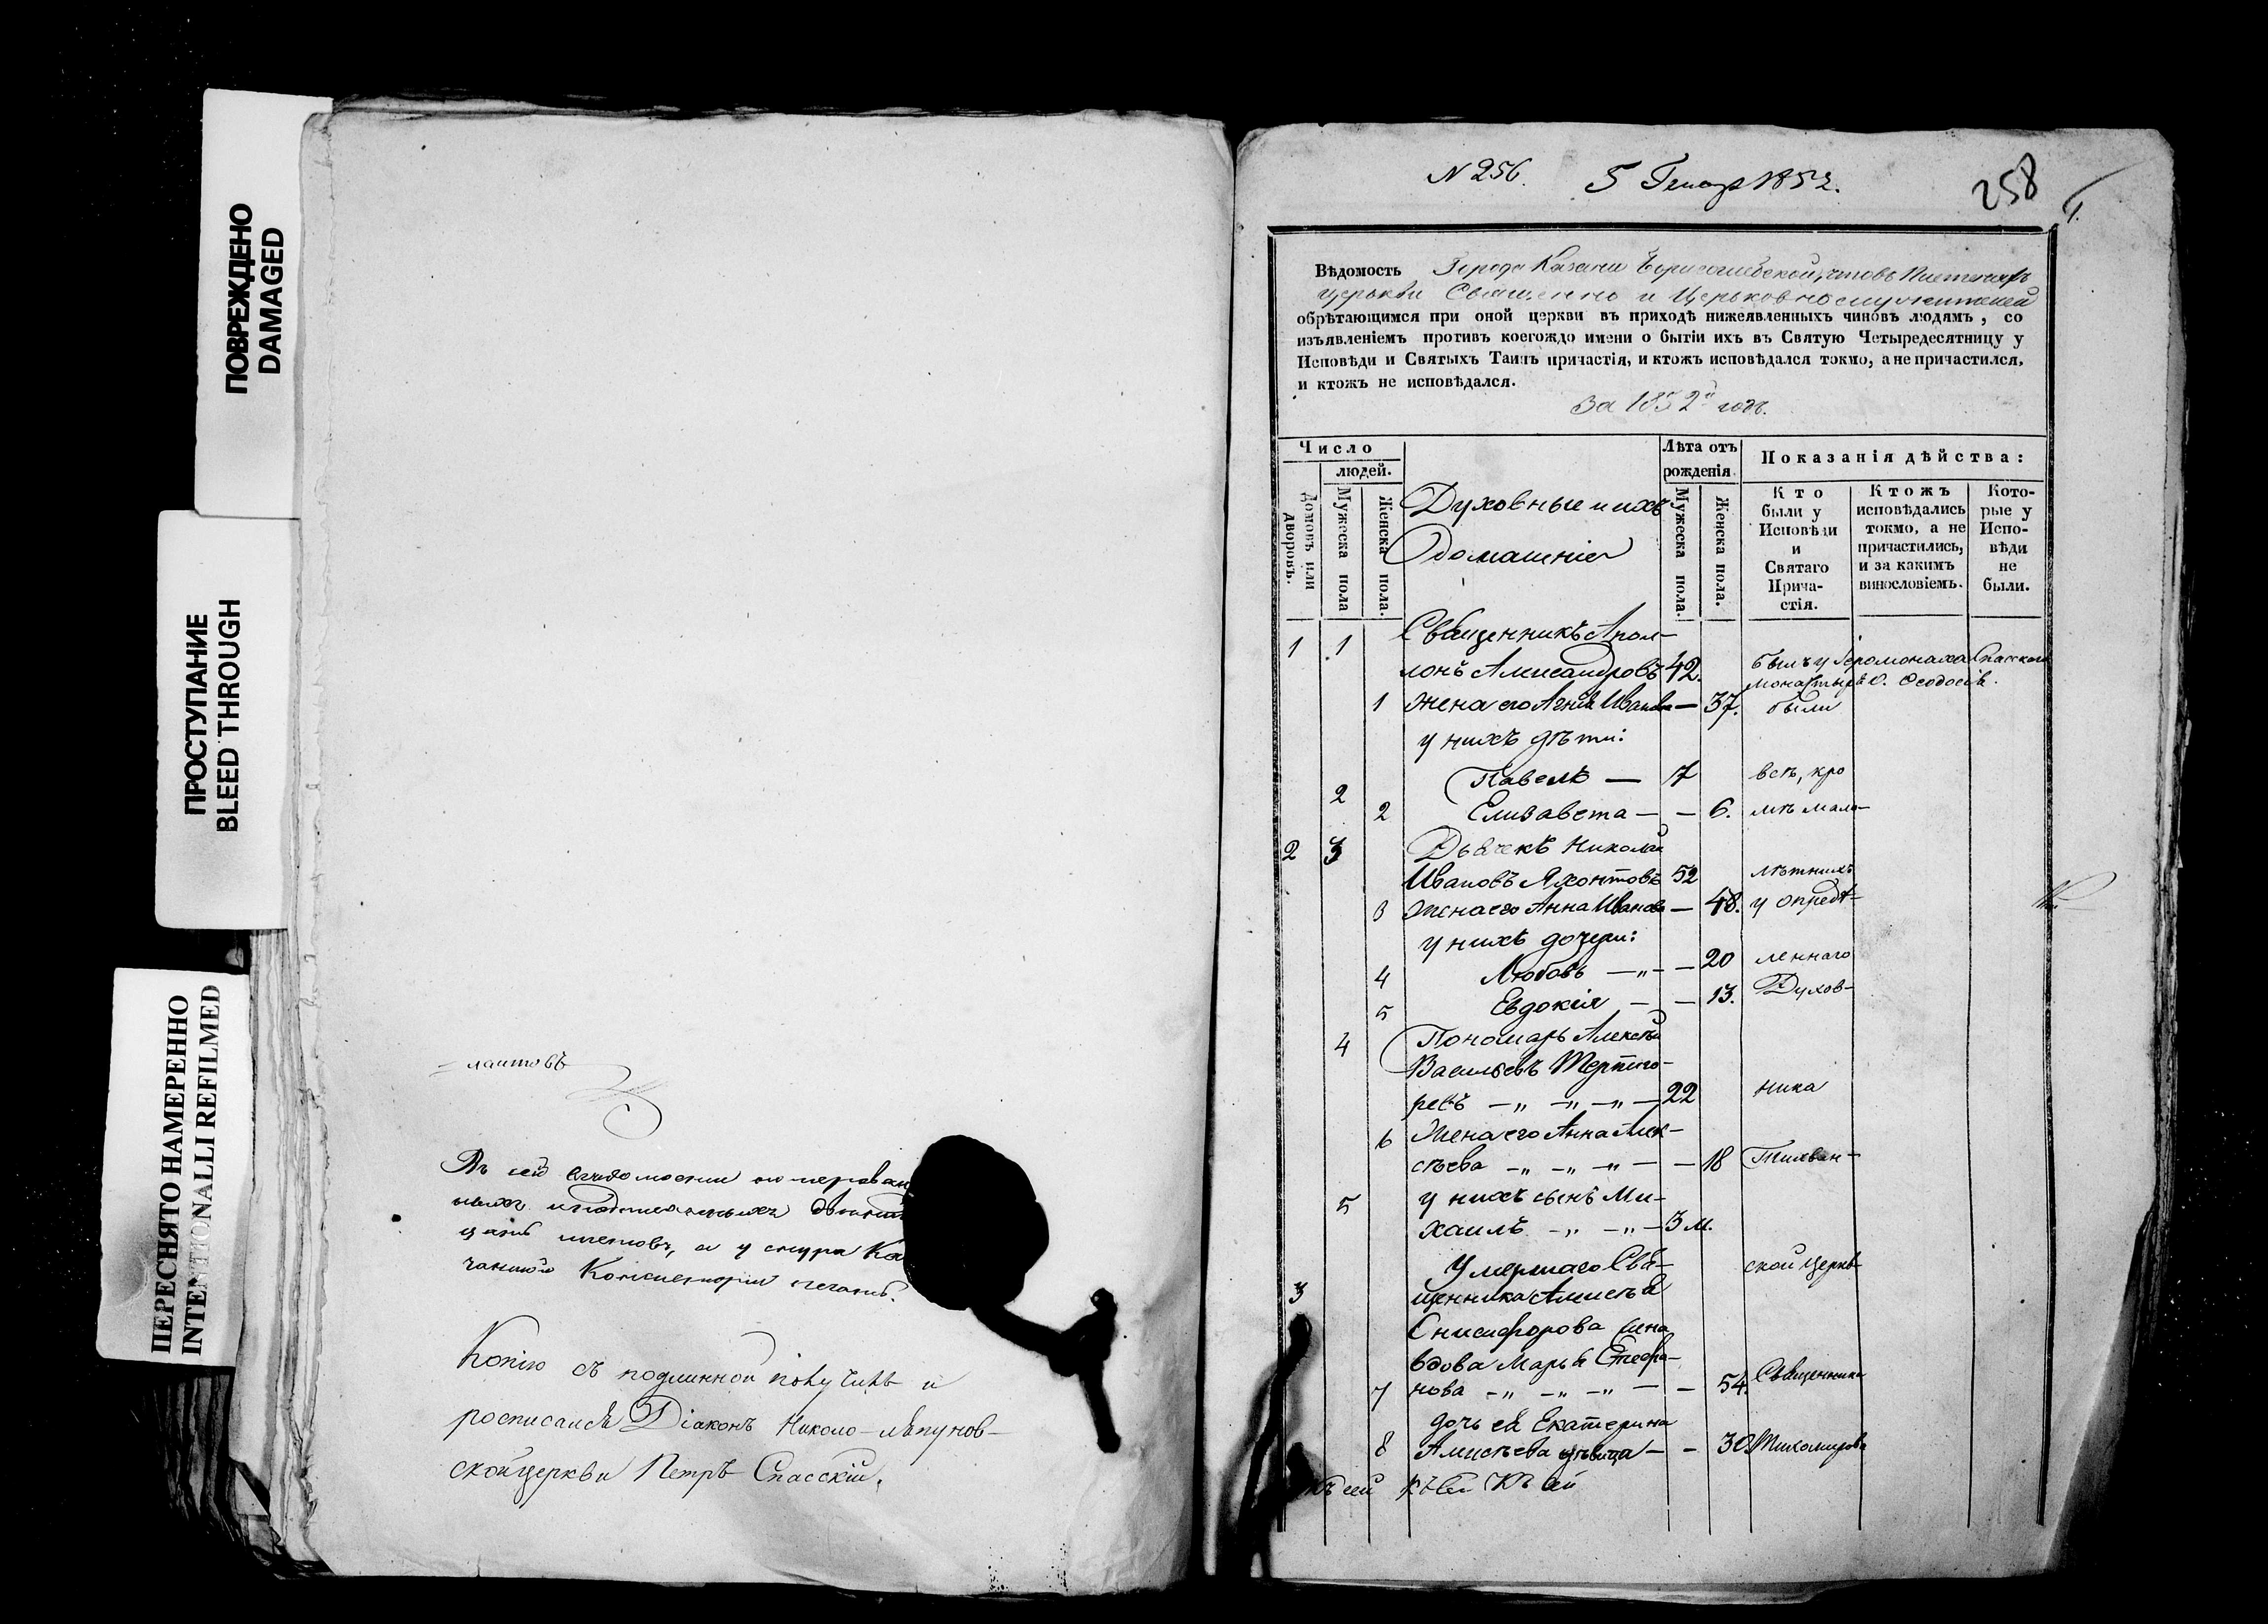 ПОВРЕЖДЕНО
DAMAGED
ПРОСТУПАНИЕ
BLEED THROUGH
ПЕРЕСНЯТО НАМЕРЕННО
INTENTIONALLI REFILMED
листовъ
Въ сей вѣдомости
листовъ, а у снура Ка
Консисторіи печать.
Копію съ подлинной получилъ и
росписался Діаконъ Николо-Ляпунов-
ской церкви Петръ Спасскій.
N 256. 5 Генваря 1852.
258
Вѣдомость Города Казани Борисоглѣбской, что въ
церкви Священно и Церковнослужителей
обрѣтающимся при оной церкви въ приходѣ нижеявленныхъ чиновъ людямъ, со
изъявленіемъ противъ коегождо имени о бытіи ихъ въ Святую Четыредесятницу у
Исповѣди и Святыхъ Таинъ причастія, и ктожъ исповѣдался токмо, а не причастился,
и ктожъ не исповѣдался.
За 1852й годъ.
Число
людей.
Домовъ или дворовъ.
Мужеска пола
Женска пола.
Духовные и ихъ
домашніе
Лѣта отъ
рожденія
Мужеска пола.
Женска пола.
Показанія дѣйства:
Кто
были у
Исповѣди
и
Святаго
Прича-
стія.
Ктожъ
исповѣдались
токмо, а не
причастились,
и за какимъ
винословіемъ.
Кото-
рые у
Испо-
вѣди
не
были.
1 1 Священникъ Апол-
лонъ Александровъ 42. былъ у Іеромонаха Спасскаго
монастыря О. Ѳеодосія.
1 жена его Агнія Иванова — 37. были
у нихъ дѣти:
2 Павелъ — 7 всѣ, кро
2 Елизавета — — 6. мѣ мало-
2 3 Дьячекъ Николай
Ивановъ Яхонтовъ 52 лѣтнихъ
3 жена его Анна Иванова — 48. у опредѣ-
у нихъ дочери:
4 Любовь — „ — — 20 леннаго
5 Евдокія — — 13. Духов-
4 Пономарь Алексѣй
Васильевъ
ревъ — „ — „ — „ — 22 ника
6 Жена его Анна Алек-
сѣева — „ — „ — „ — — 18 Тихвин-
5 у нихъ сынъ Ми-
хаилъ — „ — „ — 3 м.
Умершаго Свя- ской церкв
3 щенника Алексѣя
Онисифорова жена
вдова Марья Стефа-
7 нова — „ — „ — „ — — 54. Священника
дочь ея Екатерина
8 Алексѣева дѣвица — — 30. Тихомирова
Къ сей